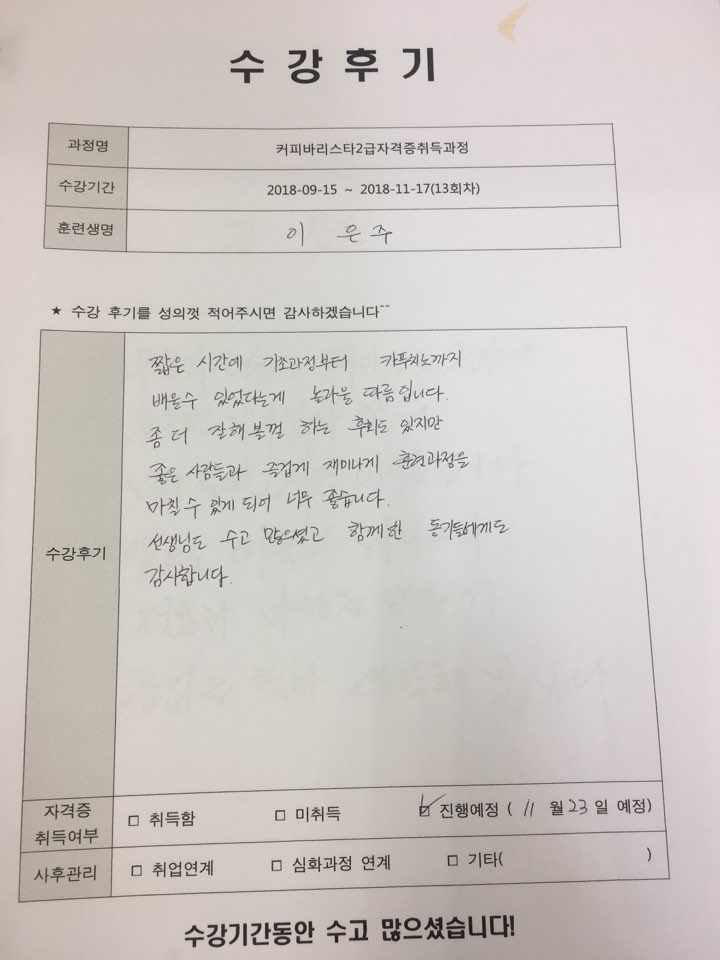 수 강 후 기
과정명 커피바리스타2급자격증취득과정
수강기간 2018-09-15 ~ 2018-11-17(13회차)
훈련생명 이 은 주
★ 수강 후기를 성의껏 적어주시면 감사하겠습니다^^
짧은 시간에 기초과정부터 카푸치노까지
배울수 있었다는게 놀라울 따름입니다.
좀 더 잘해볼껄 하는 후회도 있지만
좋은 사람들과 즐겁게 재미나게 훈련과정을
마칠 수 있게 되어 너무 좋습니다.
수강후기
선생님도 수고 많으셨고 함께한 동기들에게도
감사합니다.
자격증 취득여부 □ 취득함 □ 미취득 ☑ 진행예정 ( 11 월 23 일 예정)
사후관리 □ 취업연계 □ 심화과정 연계 □ 기타( )
수강기간동안 수고 많으셨습니다!